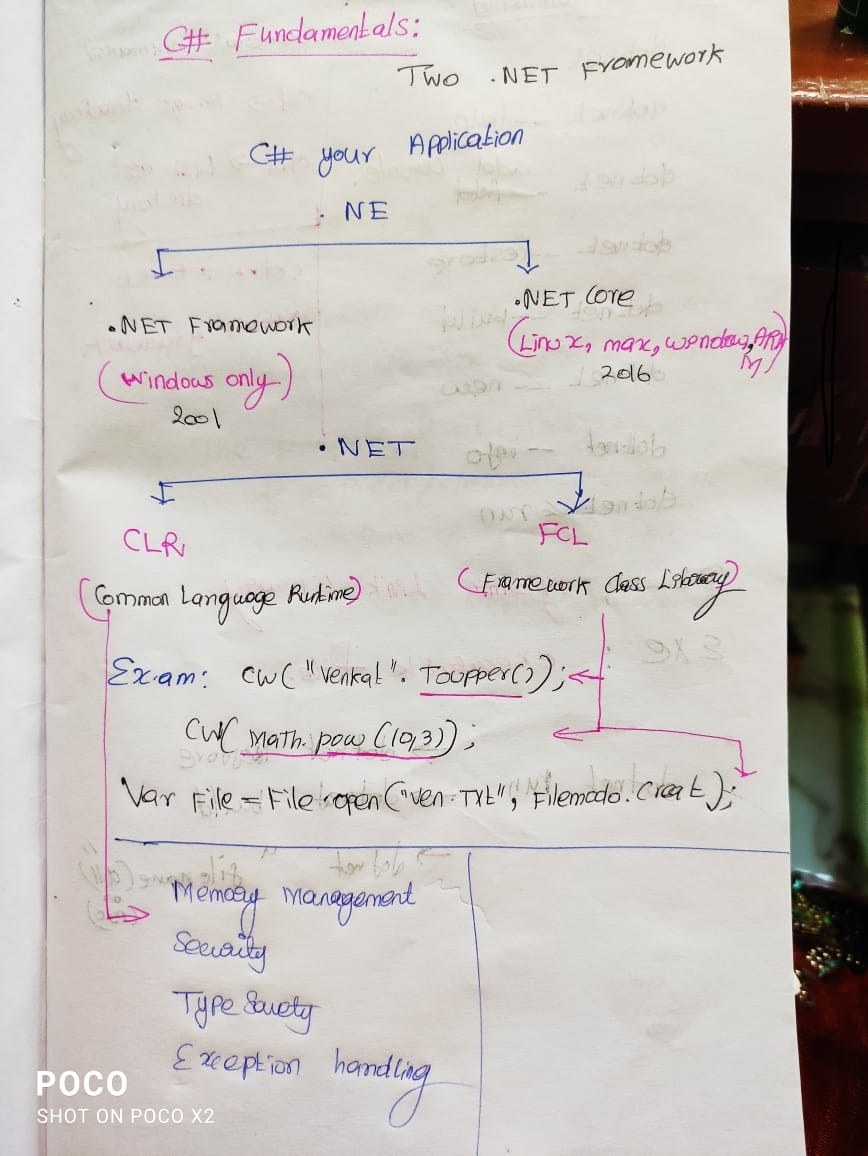 C# Fundamentals:
Two .NET Framework
C# your Application
. NE
.NET Framework
(Windows only)
2001
.NET Core
(Linux, max, wendow, ARM)
2016
.NET
CLR
(Common Language Runtime)
FCL
(Framework Class Library)
Exam: CW("Venkat". Toupper());
CW(Math.pow(10,3));
Var File = File.open("ven.TXt", Filemodo.Creat);
Memory Management
Security
Type Saucty
Exception handling
POCO
SHOT ON POCO X2